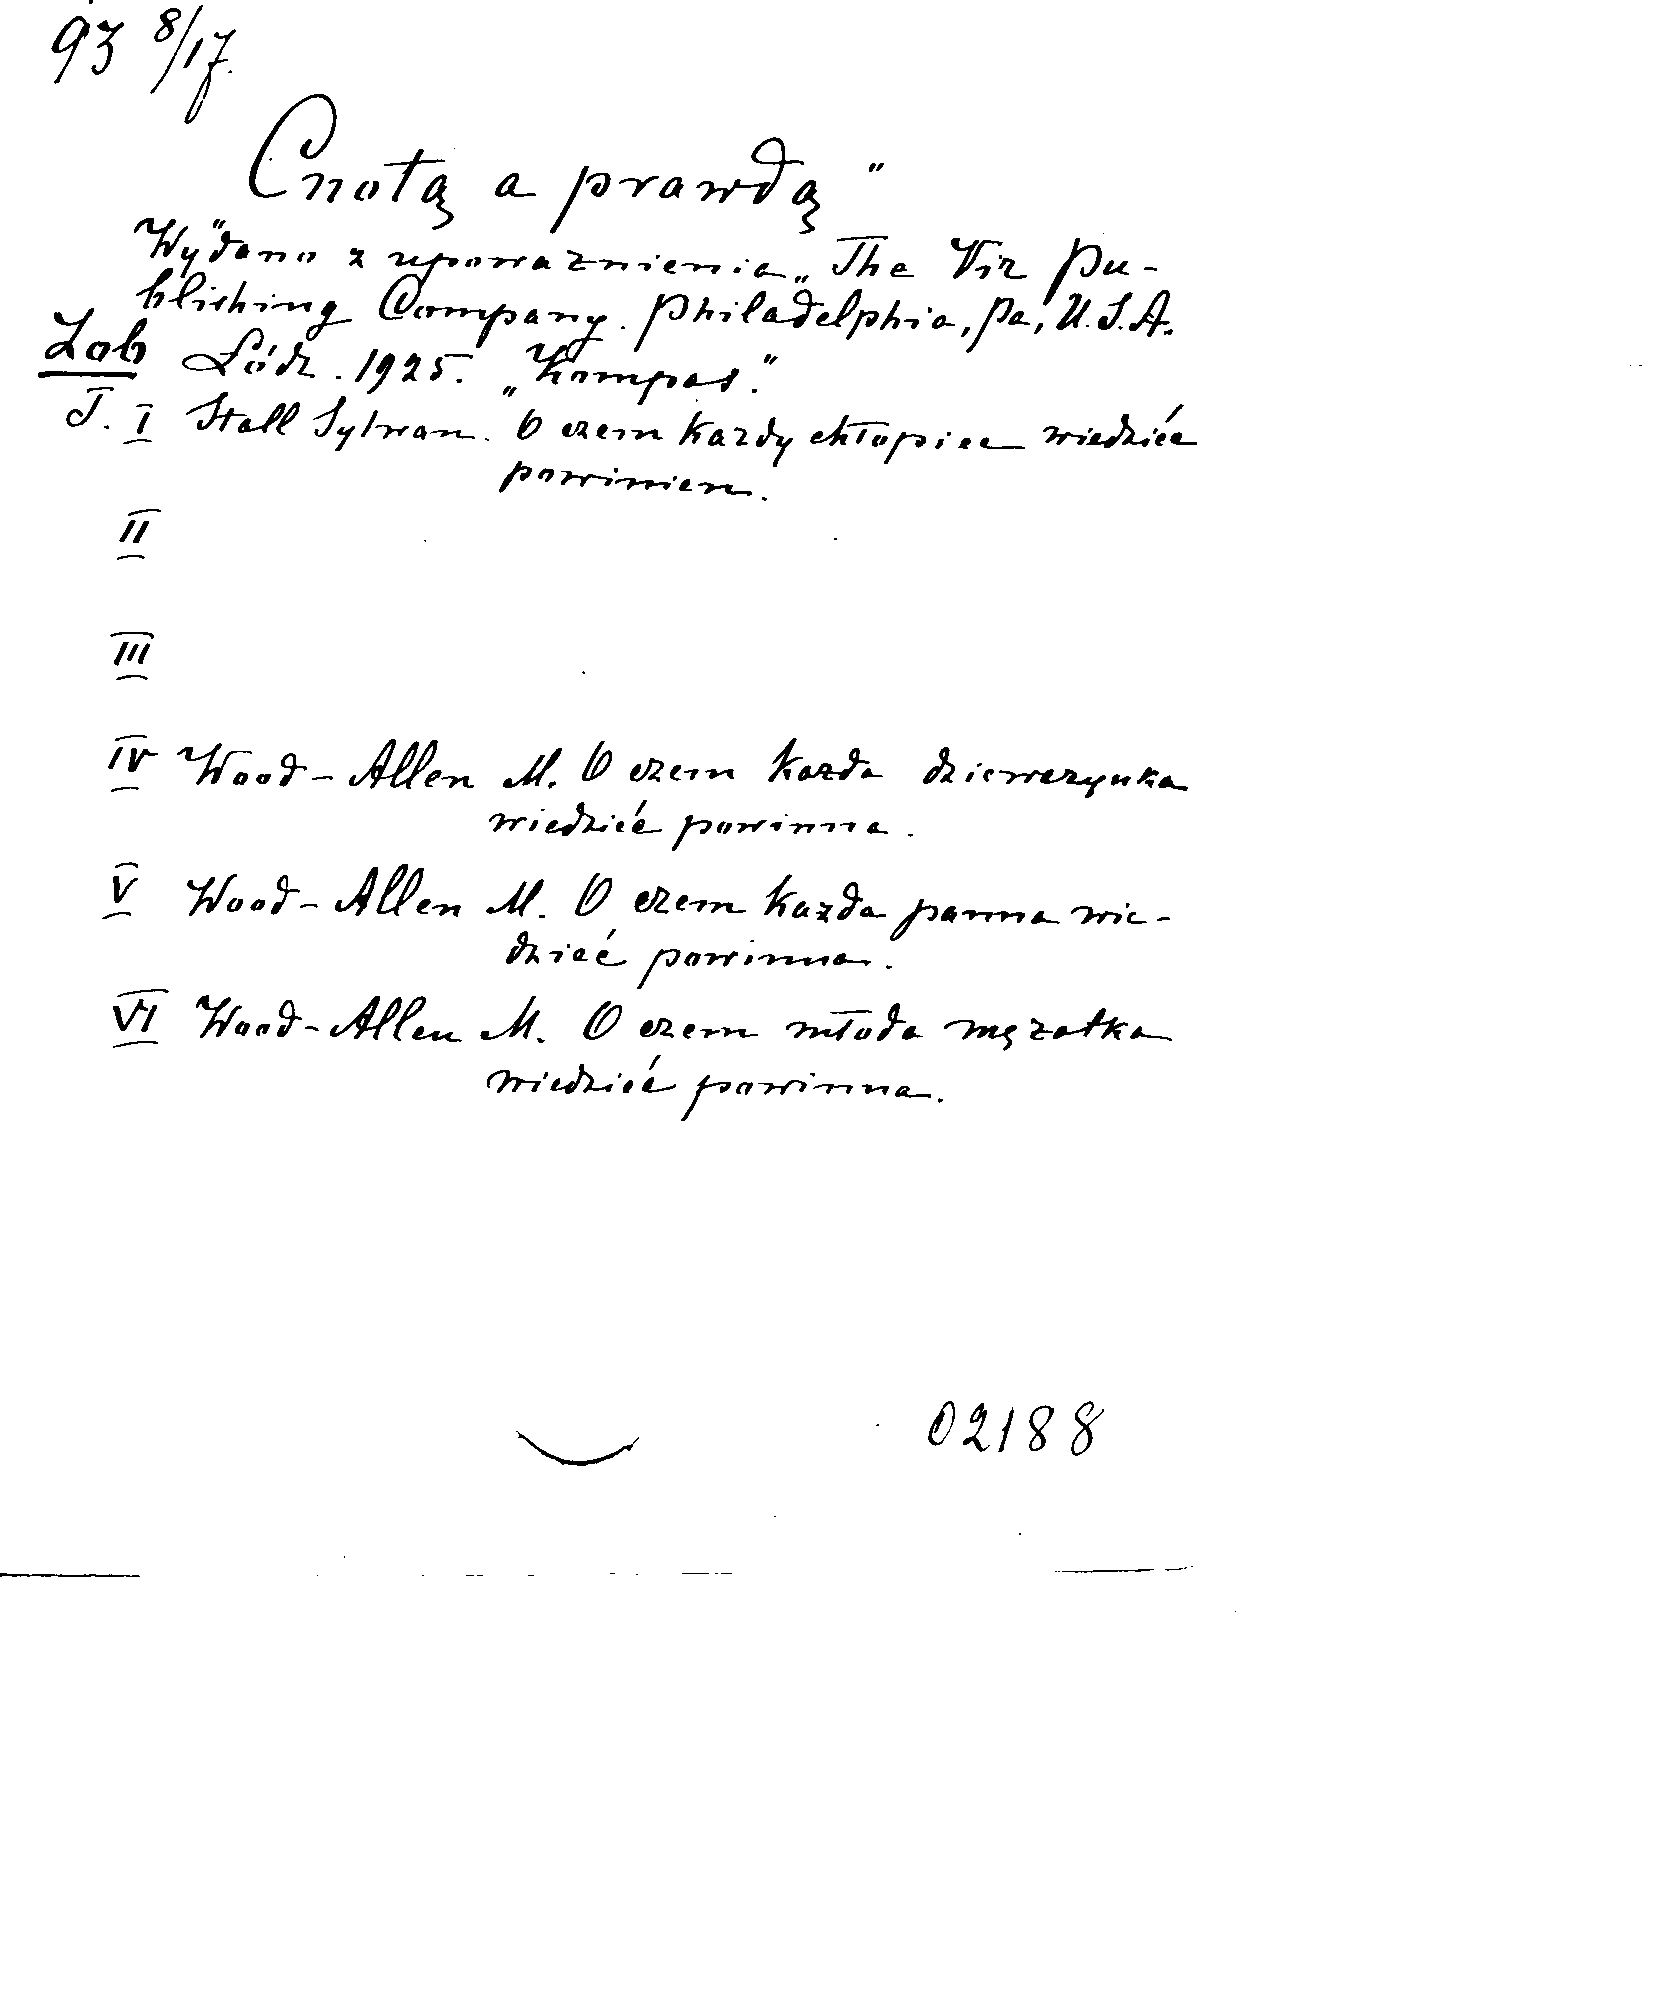 93 8/17.
Cnotą a prawdą"
Wydano z upoważnienia „The Vir Pu-
blishing Company. Philadelphia, Pa, U.S.A.
Zob Łódz. 1925. „Kompas".
T. I Stall Sylwan. O czem każdy chłopiec wiedzieć
powinien.
II
III
IV Wood-Allen M. O czem każda dziewczynka
wiedzieć powinna.
V Wood-Allen M. O czem każda panna wie-
dzieć powinna.
VI Wood-Allen M. O czem młoda mężatka
wiedzieć powinna.
02188